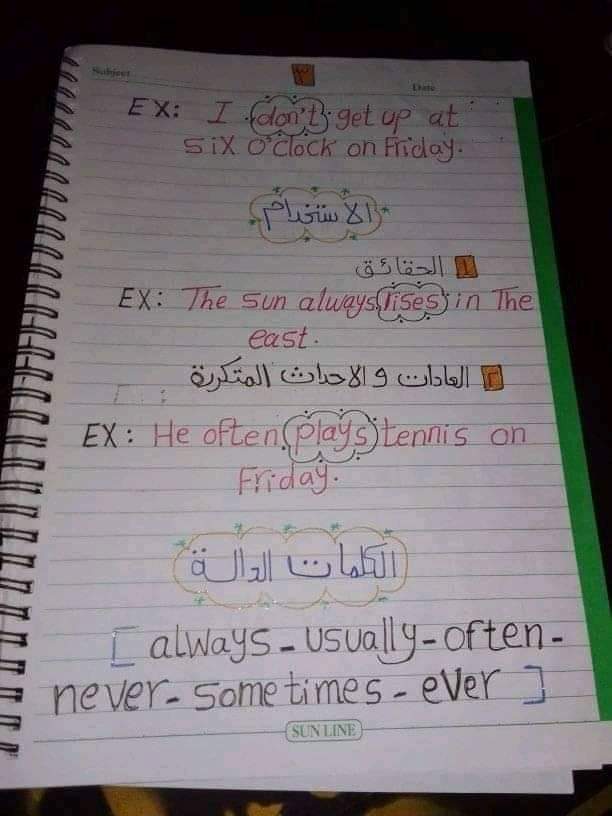 Subject
٣
Date
EX: I don't get up at
six o'clock on Friday.
الاستخدام
١ الحقائق
EX: The sun always rises in The
east.
٢ العادات و الاحداث المتكررة
EX: He often plays tennis on
Friday.
الكلمات الدالة
[ always - usually - often -
never - sometimes - ever ]
SUN LINE